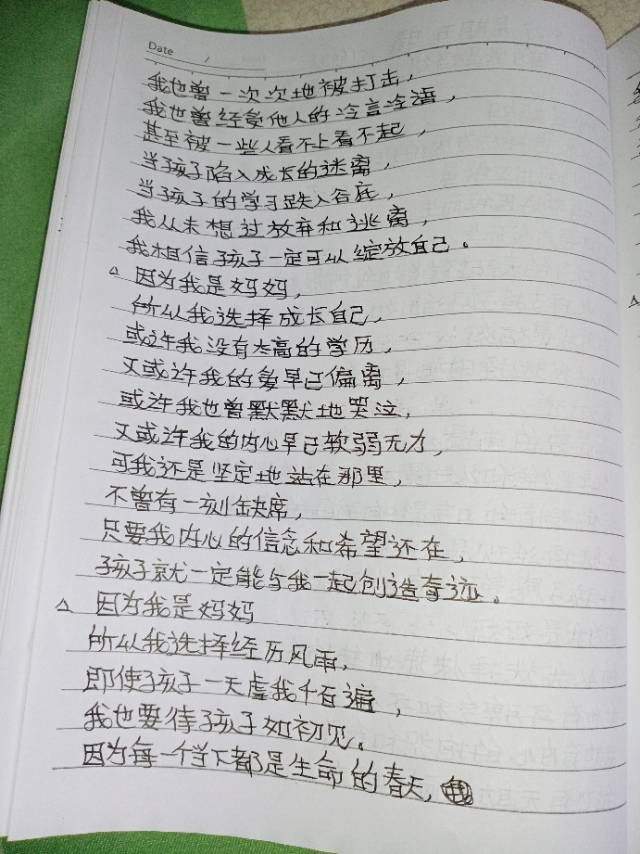 Date /
我也曾一次次地被打击，
我也曾经受他人的冷言冷语，
甚至被一些人看不上看不起，
当孩子陷入成长的迷离，
当孩子的学习跌入谷底，
我从未想过放弃和逃离，
我相信孩子一定可以绽放自己。
△因为我是妈妈，
所以我选择成长自己，
或许我没有太高的学历，
又或许我的爱早已偏离，
或许我也曾默默地哭泣，
又或许我的内心早已软弱无力，
可我还是坚定地站在那里，
不曾有一刻缺席，
只要我内心的信念和希望还在，
孩子就一定能与我一起创造奇迹。
△因为我是妈妈
所以我选择经历风雨，
即使孩子一天虐我千百遍，
我也要待孩子如初见。
因为每一个当下都是生命的春天，